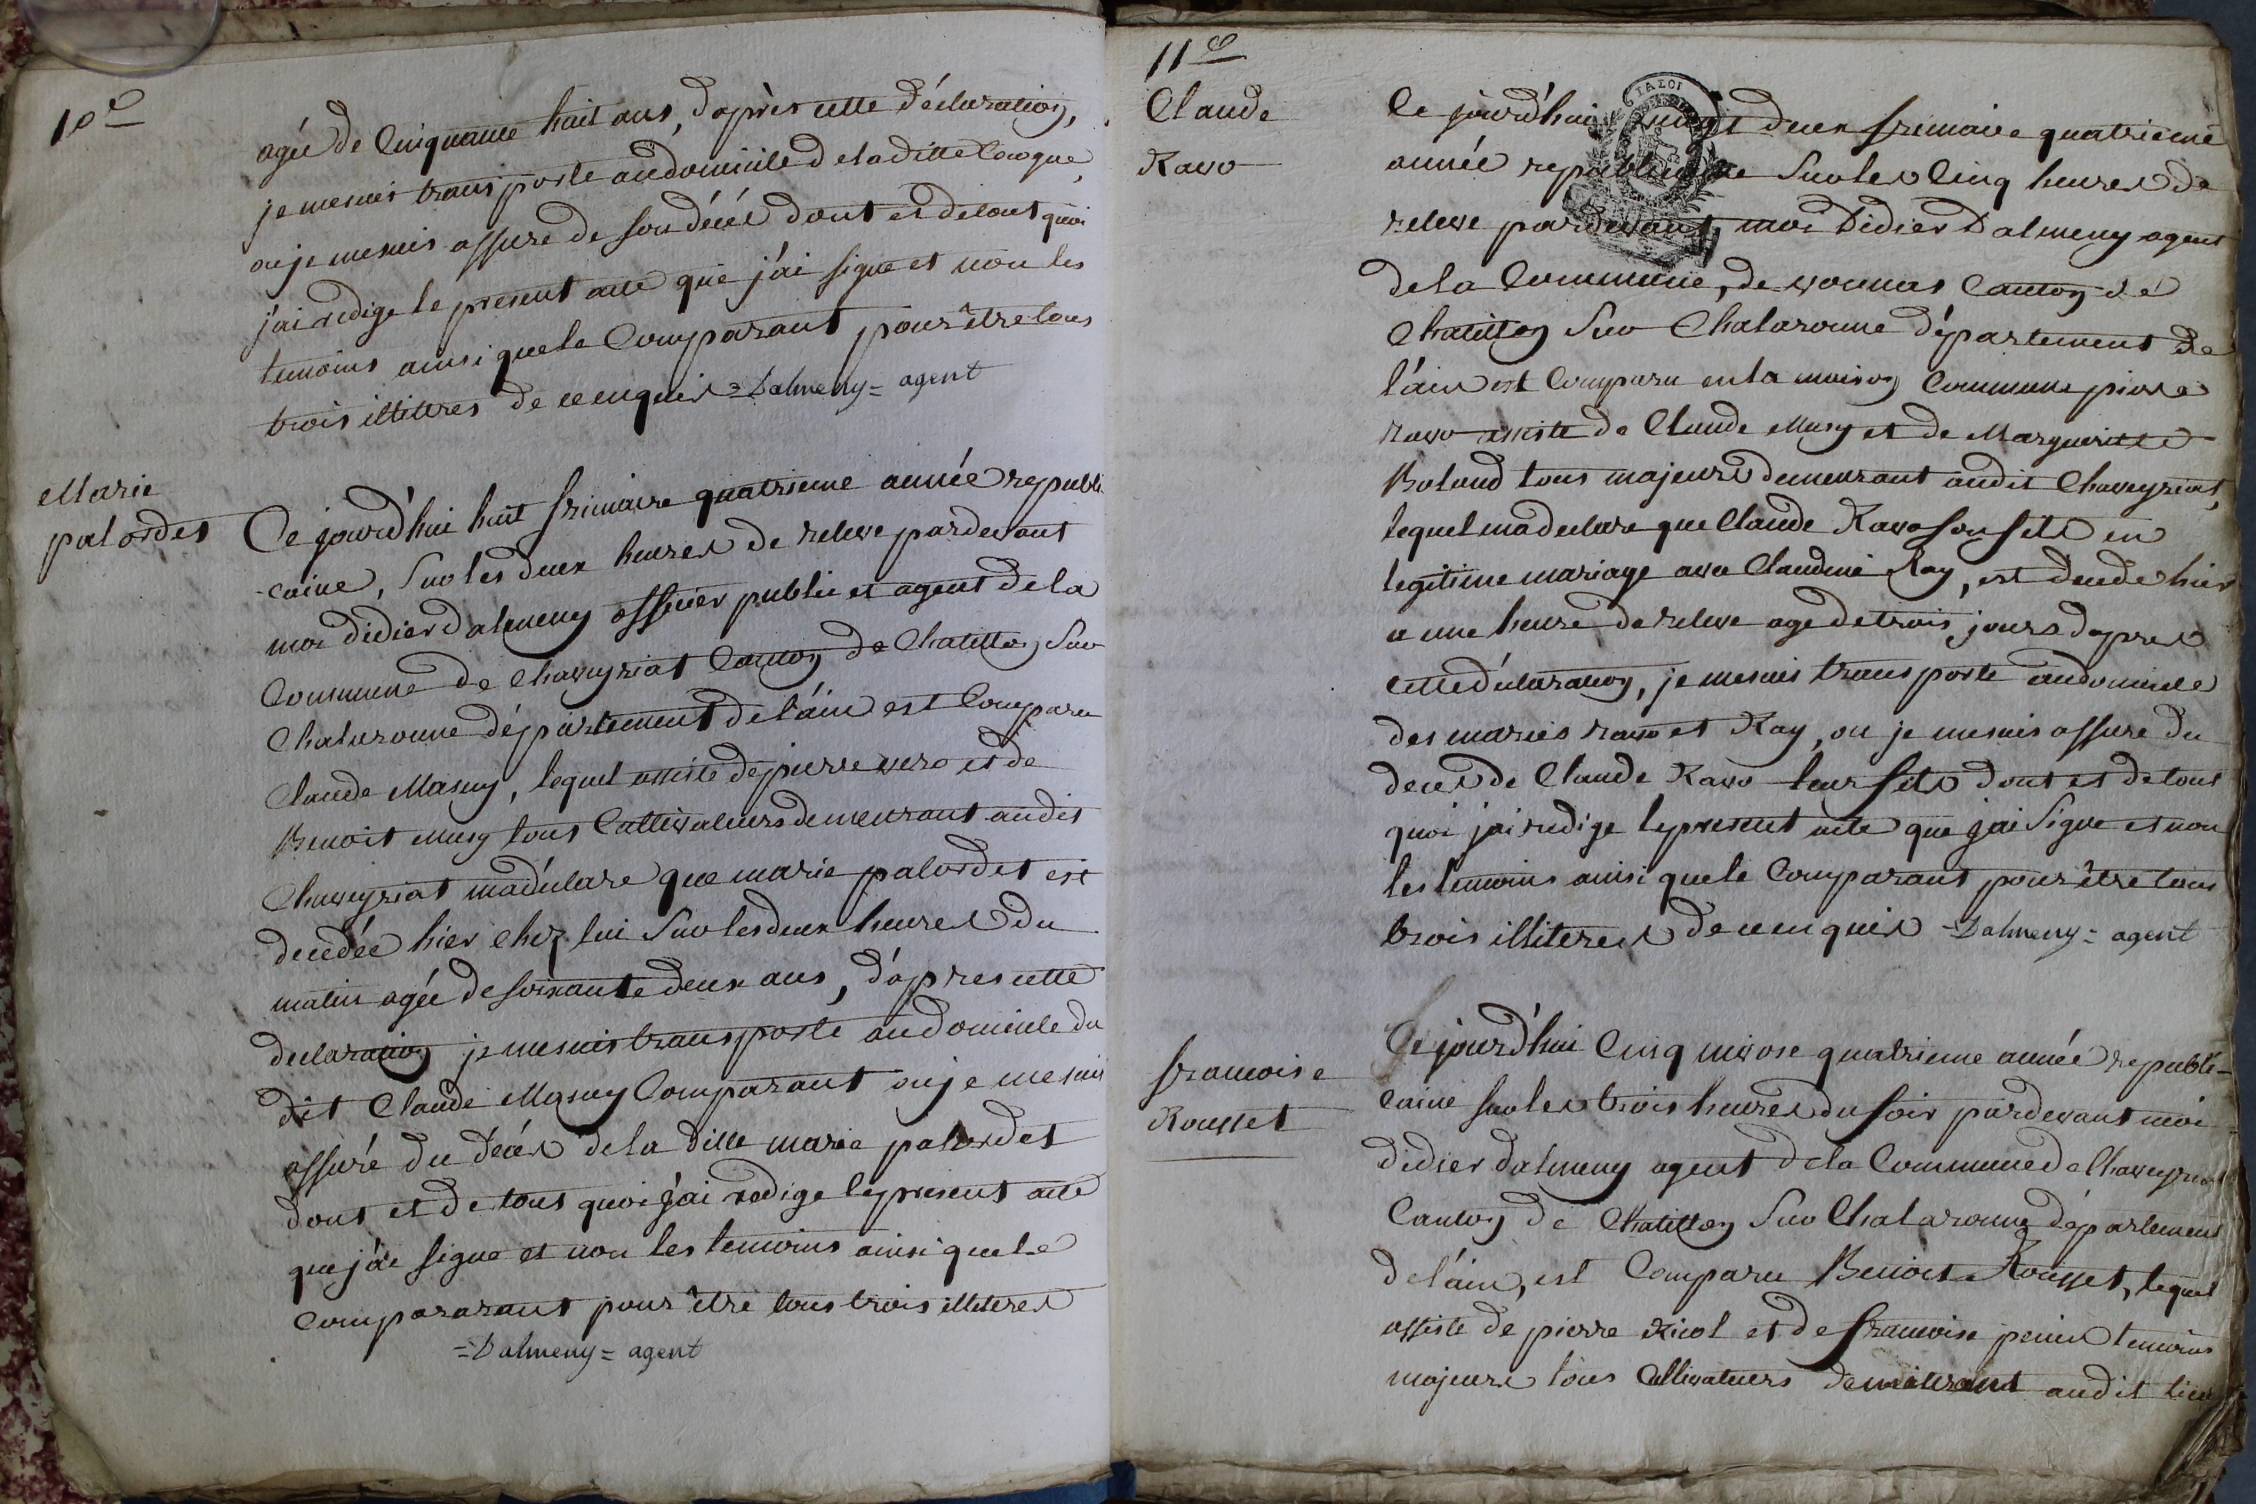 10e
agée de Cinquante huit ans, d'après cette déclaration,
je mesuis transporte audomicile de la ditte Cocogne,
ou je mesuis assure de son décés dont et detout quoi
j'ai redige le present acte que j'ai signe et non les
temoins ainsi que le Comparant pour être tous
trois illitires de ce enquis = Dalmeny = agent
Marie
palordet
Ce jourd'hui huit frimaire quatrieme année republi
-caine, Sur les deux heures de releve pardevant
moi didier dalmeny officier public et agent de la
Commune de Chaveyriat Canton de Chatillon Sur
Chalaronne département de l'ain est Comparu
Claude Masuy, lequel assiste de pierre vero et de
Benoit musy tous Cultivateurs demeurant audit
Chaveyriat m'a déclare que marie palordet est
decedée hier chez lui Sur les deux heures du
matin agée de soixante deux ans, d'apres cette
declaration je mesuis transporte au domicile du
dit Claude Masuy Comparant ou je mesuis
assuré du décés de la ditte marie palordet
dont et de tout quoi j'ai redige le present acte
que j'ai signe et non les temoins ainsi que le
Compararant pour être tous trois illiteres
= Dalmeny = agent
11e
Claude
Ravo
Ce jourd'hui vingt deux frimaire quatrieme
année republicaine Sur les Cinq heures de
releve pardevant moi Didier Dalmeny agent
de la Commune, de vonnas Canton de
Chatillon Sur Chalaronne département de
l'ain est Comparu en la maison Commune pierre
ravo assiste de Claude Musy et de Marguerite
Boland tous majeurs demeurant audit Chaveyriat,
lequel m'a declare que Claude Ravo son fils en
legitime mariage avec Claudine Ray, est decede hier
a une heure de releve age de trois jours d'apres
cette déclaration, je mesuis transporte audomicile
des mariés ravo et Ray, ou je mesuis assure du
deces de Claude Ravo leur fils dont et de tout
quoi j'ai redige le present acte que j'ai Signe et non
les temoins ainsi que le Comparant pour être tous
trois illiteres de ce enquis = Dalmeny = agent
francoise
Rousset
Ce jourd'hui Cinq nivose quatrieme année republi-
caine sur les trois heures du soir pardevant moi
didier dalmeny agent de la Commune de Chaveyriat
Canton de Chatillon Sur Chalaronne département
de l'ain, est Comparu Benoit Rousset, lequel
assiste de pierre Nicol et de francoise temoins
majeurs tous Cultivateurs demeurant audit lieu